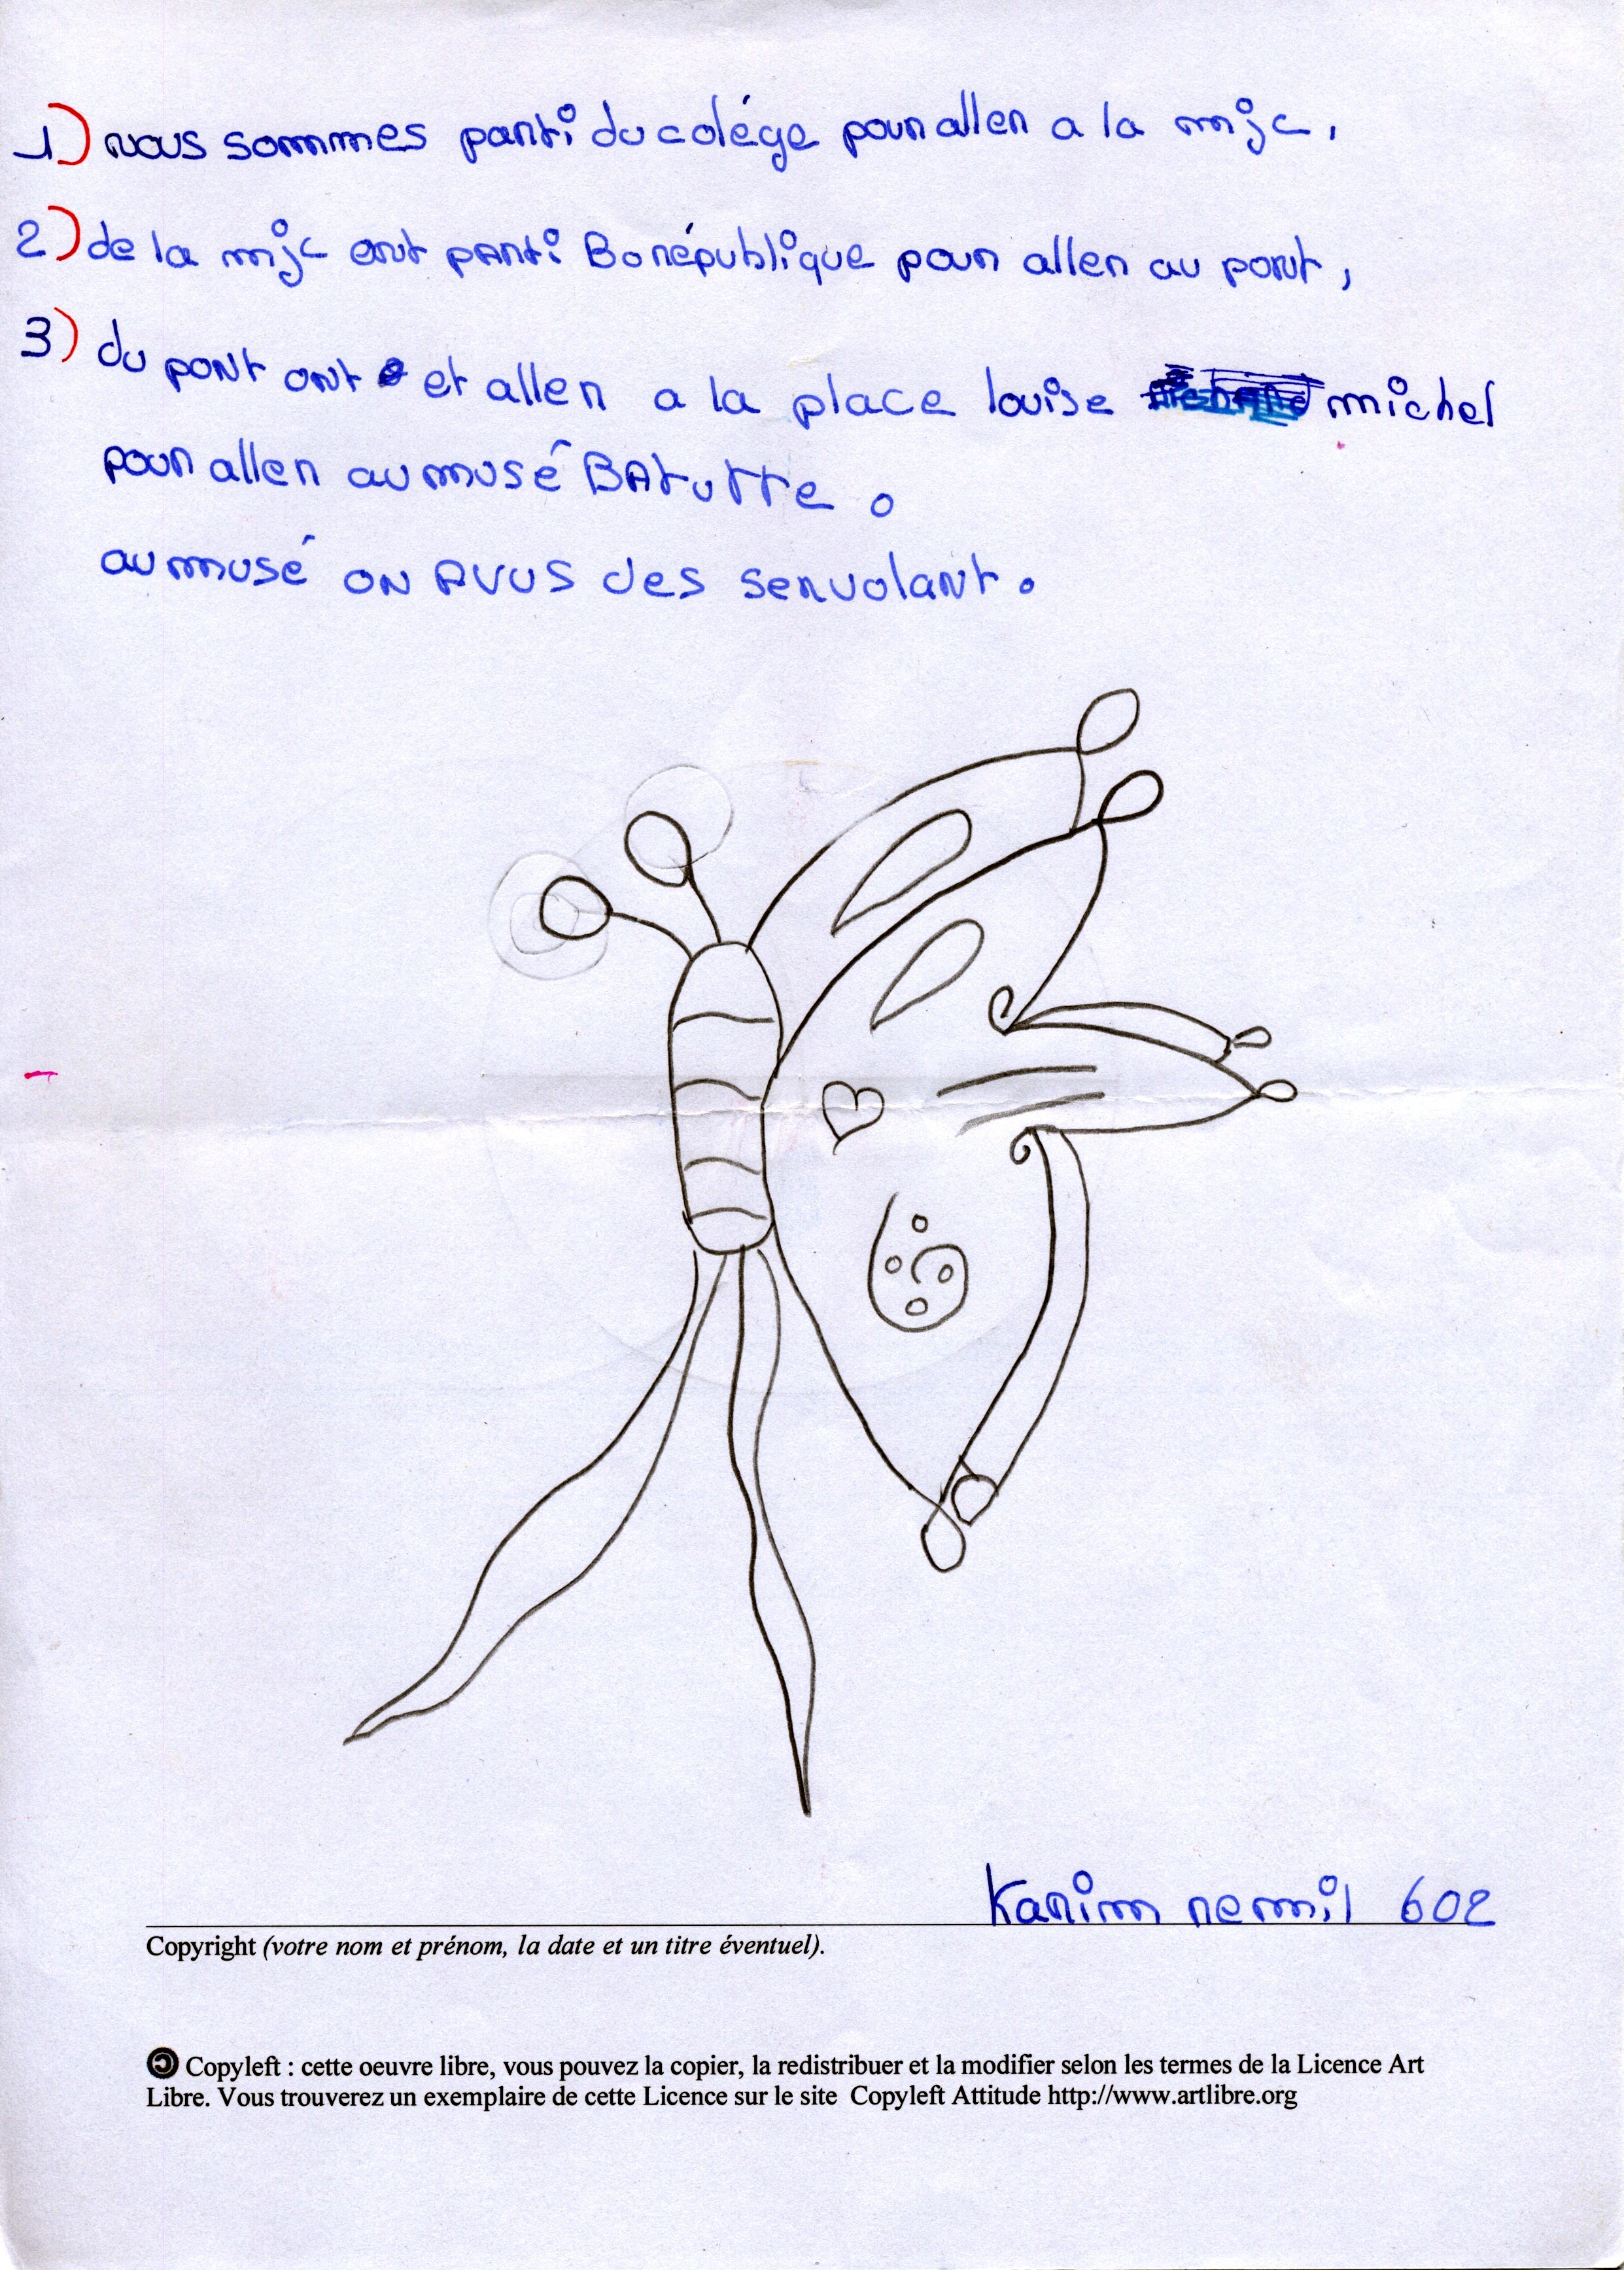 1) nous sommes parti du colége pour aller a la mjc,
2) de la mjc ont parti Bo république pour aller au pont,
3) du pont ont et aller a la place louise michel
pour aller au musé BAtutte.
au musé on Avus des servolant.
Karim remil 602
Copyright (votre nom et prénom, la date et un titre éventuel).
Copyleft : cette oeuvre libre, vous pouvez la copier, la redistribuer et la modifier selon les termes de la Licence Art
Libre. Vous trouverez un exemplaire de cette Licence sur le site Copyleft Attitude http://www.artlibre.org